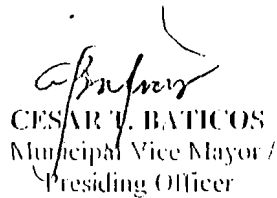 CESAR T. BATICOS
Municipal Vice Mayor /
Presiding Officer